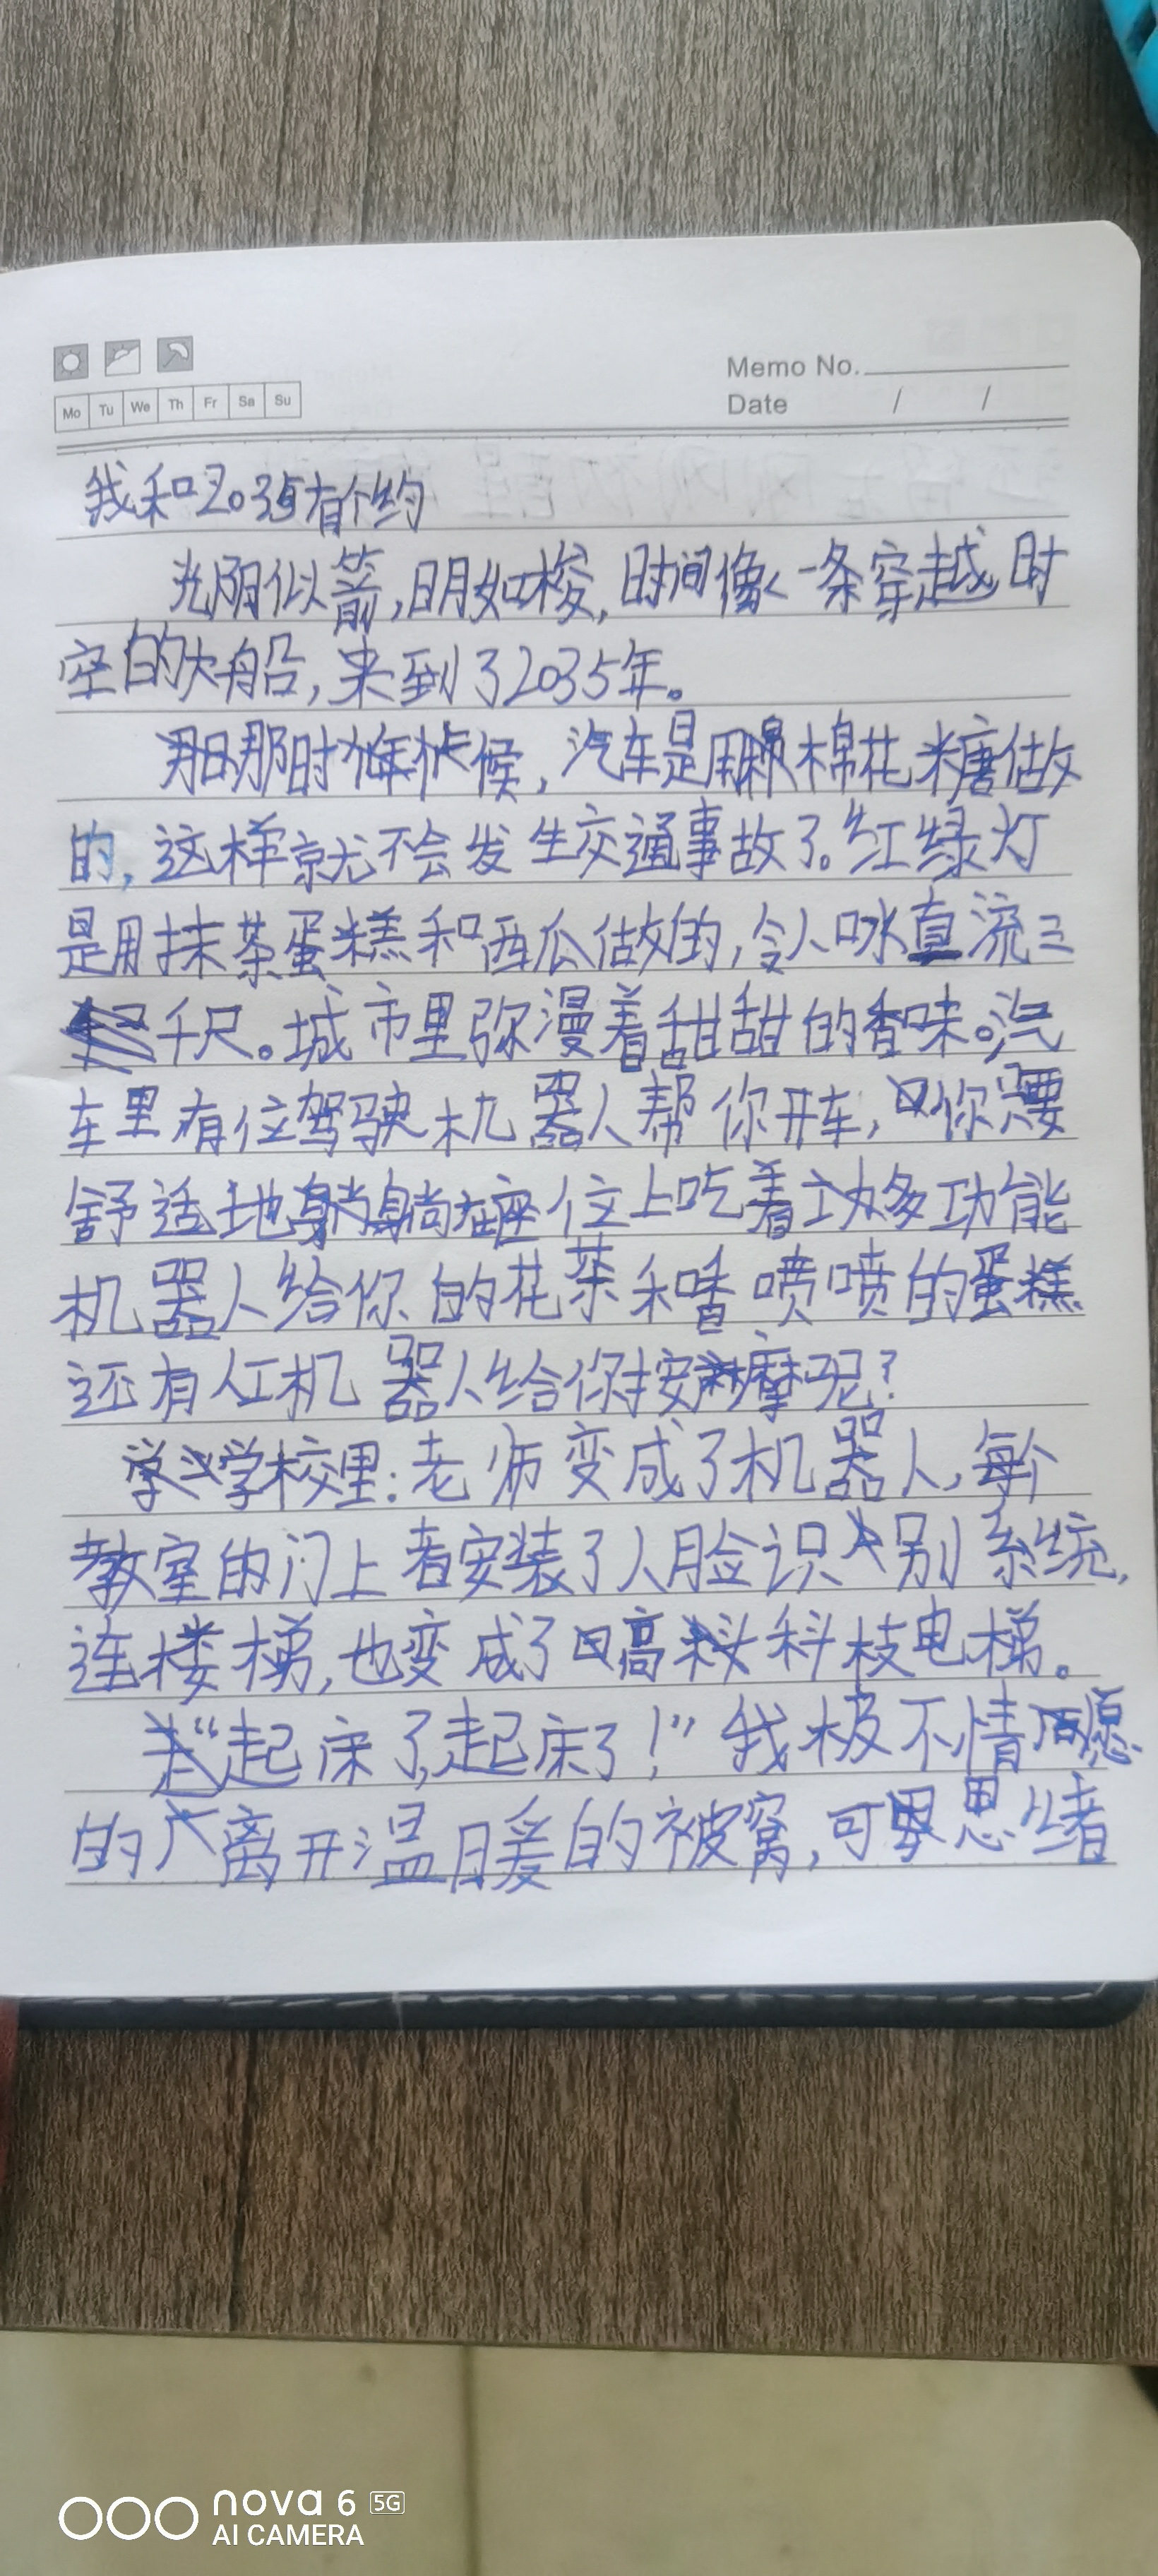 Memo No.
Mo Tu We Th Fr Sa Su
Date / /
我和2035有个约
光阴似箭,日月如梭,时间像一条穿越时
空的大船,来到了2035年。
那时候,汽车是用棉花糖做
的,这样就不会发生交通事故了。红绿灯
是用抹茶蛋糕和西瓜做的,令人口水直流三
千尺。城市里弥漫着甜甜的香味。汽
车里有位驾驶机器人帮你开车,你只要
舒适地躺在座位上吃着多功能
机器人给你的花茶和香喷喷的蛋糕
还有人工机器人给你按摩呢?
学校里:老师变成了机器人,每个
教室的门上者安装了人脸识别系统,
连楼梯,也变成了高科枝电梯。
“起床了,起床了!”我极不情愿
的离开温暖的被窝,可思绪
nova 6 5G
AI CAMERA